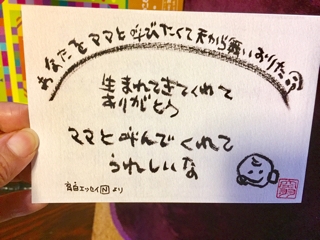 あなたをママと呼びたくて天から舞いおりた
生まれてきてくれて
ありがとう
ママと呼んでくれて
うれしいな
告白エッセイNより